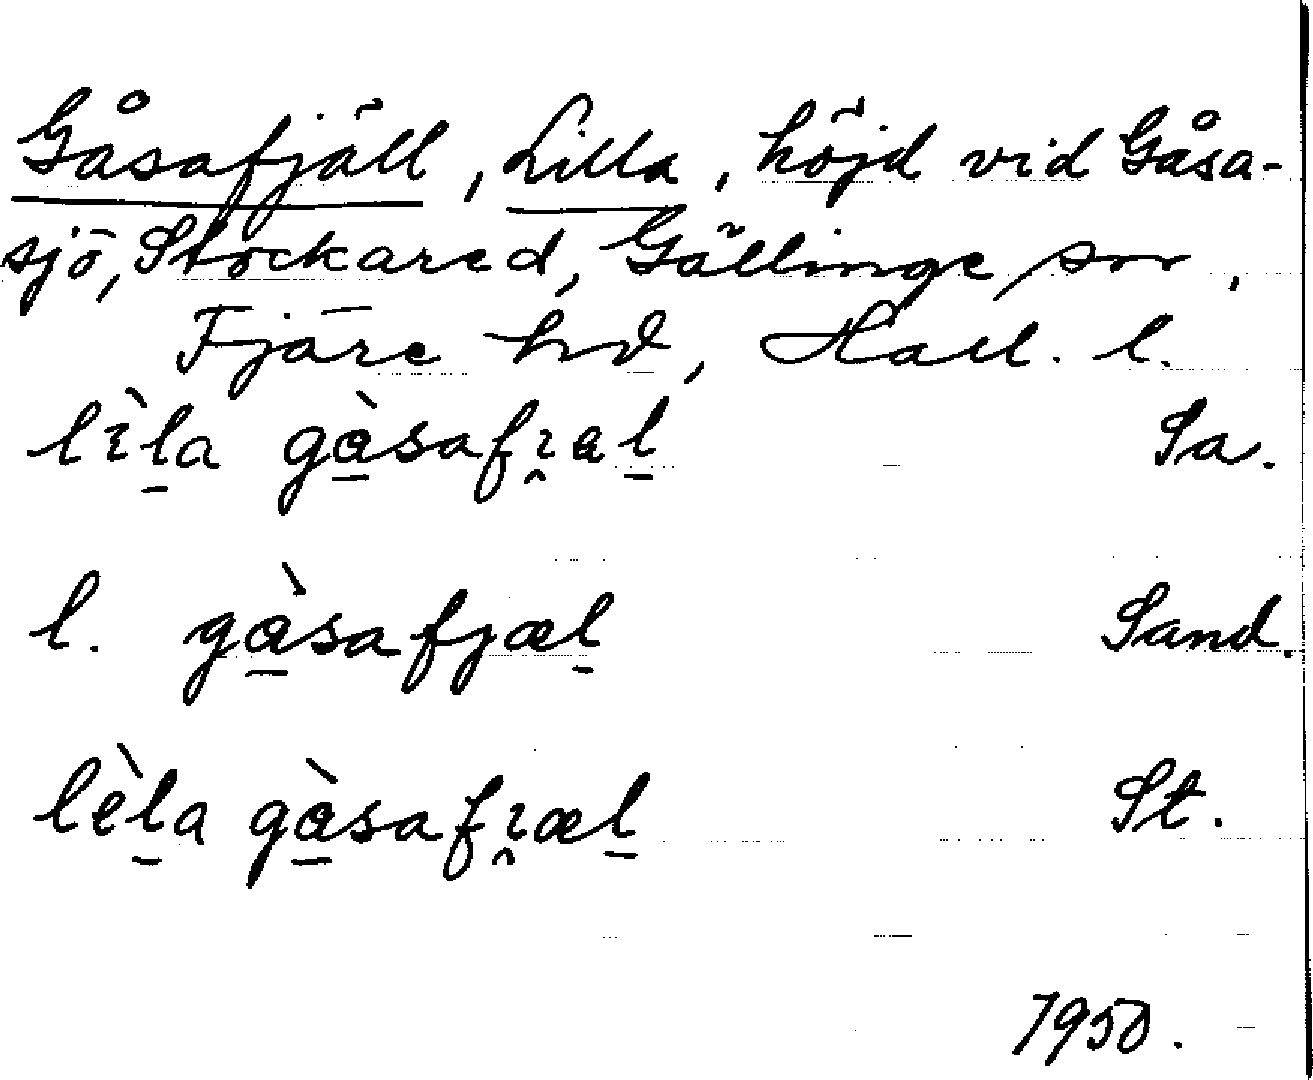 Gåsafjäll, Lilla, höjd vid Gåsa-
sjö, Stockared, Gällinge sn,
Fjäre hd, Hall. l.
lɩ̀l̲a gɑ̲̀safɩ̯æl̲ Sa.
l. gɑ̲̀safjæl̲ Sand.
lèl̲a gɑ̲̀safɩ̯æl̲ St.
1950.